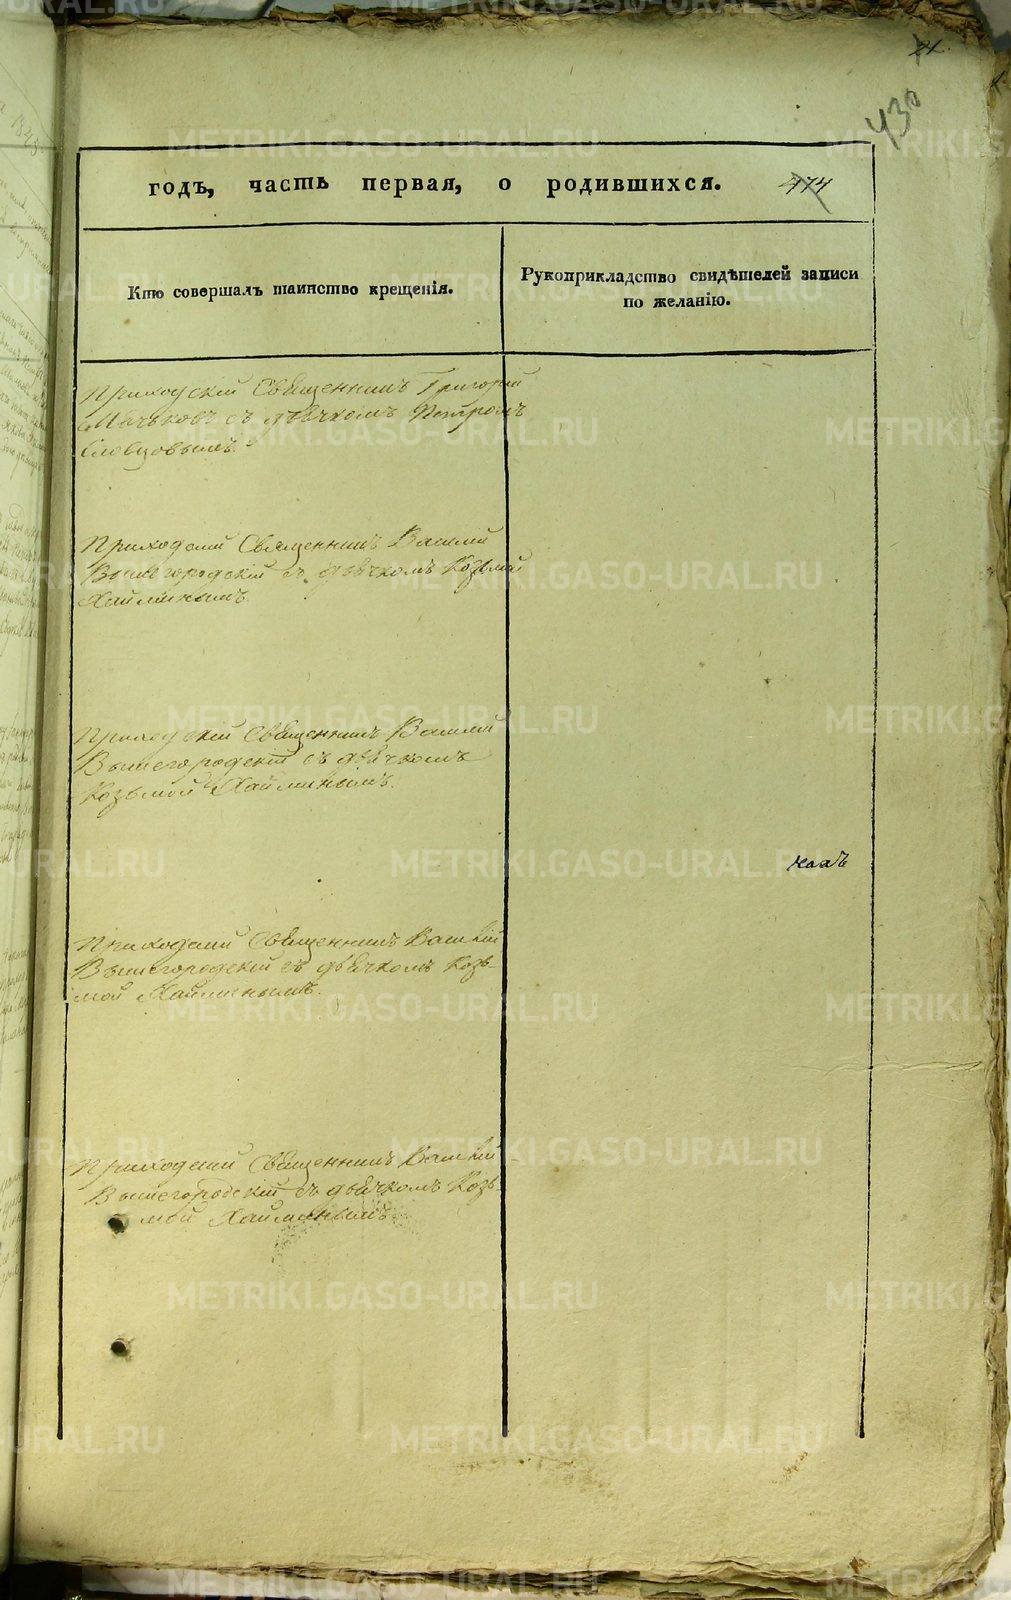 21.
430
474
годъ, часть первая, о родившихся.
Кто совершалъ таинство крещенія.
Рукоприкладство свидѣтелей записи
по желанію.
Приходскій Священникъ Григорій
съ дьячкомъ Петромъ
Словцовымъ.
Приходскій Священникъ Василій
Вышегородскій съ дьячкомъ Козьмой
Хайминымъ.
Приходскій Священникъ Василій
Вышегородскій съ дьячкомъ
Козьмой Хайминымъ.
Приходскій Священникъ Василій
Вышегородскій съ дьячкомъ Козь-
мой Хайминымъ.
Приходскій Священникъ Василій
Вышегородскій съ дьячкомъ Козь-
мой Хайминымъ.
METRIKI.GASO-URAL.RU